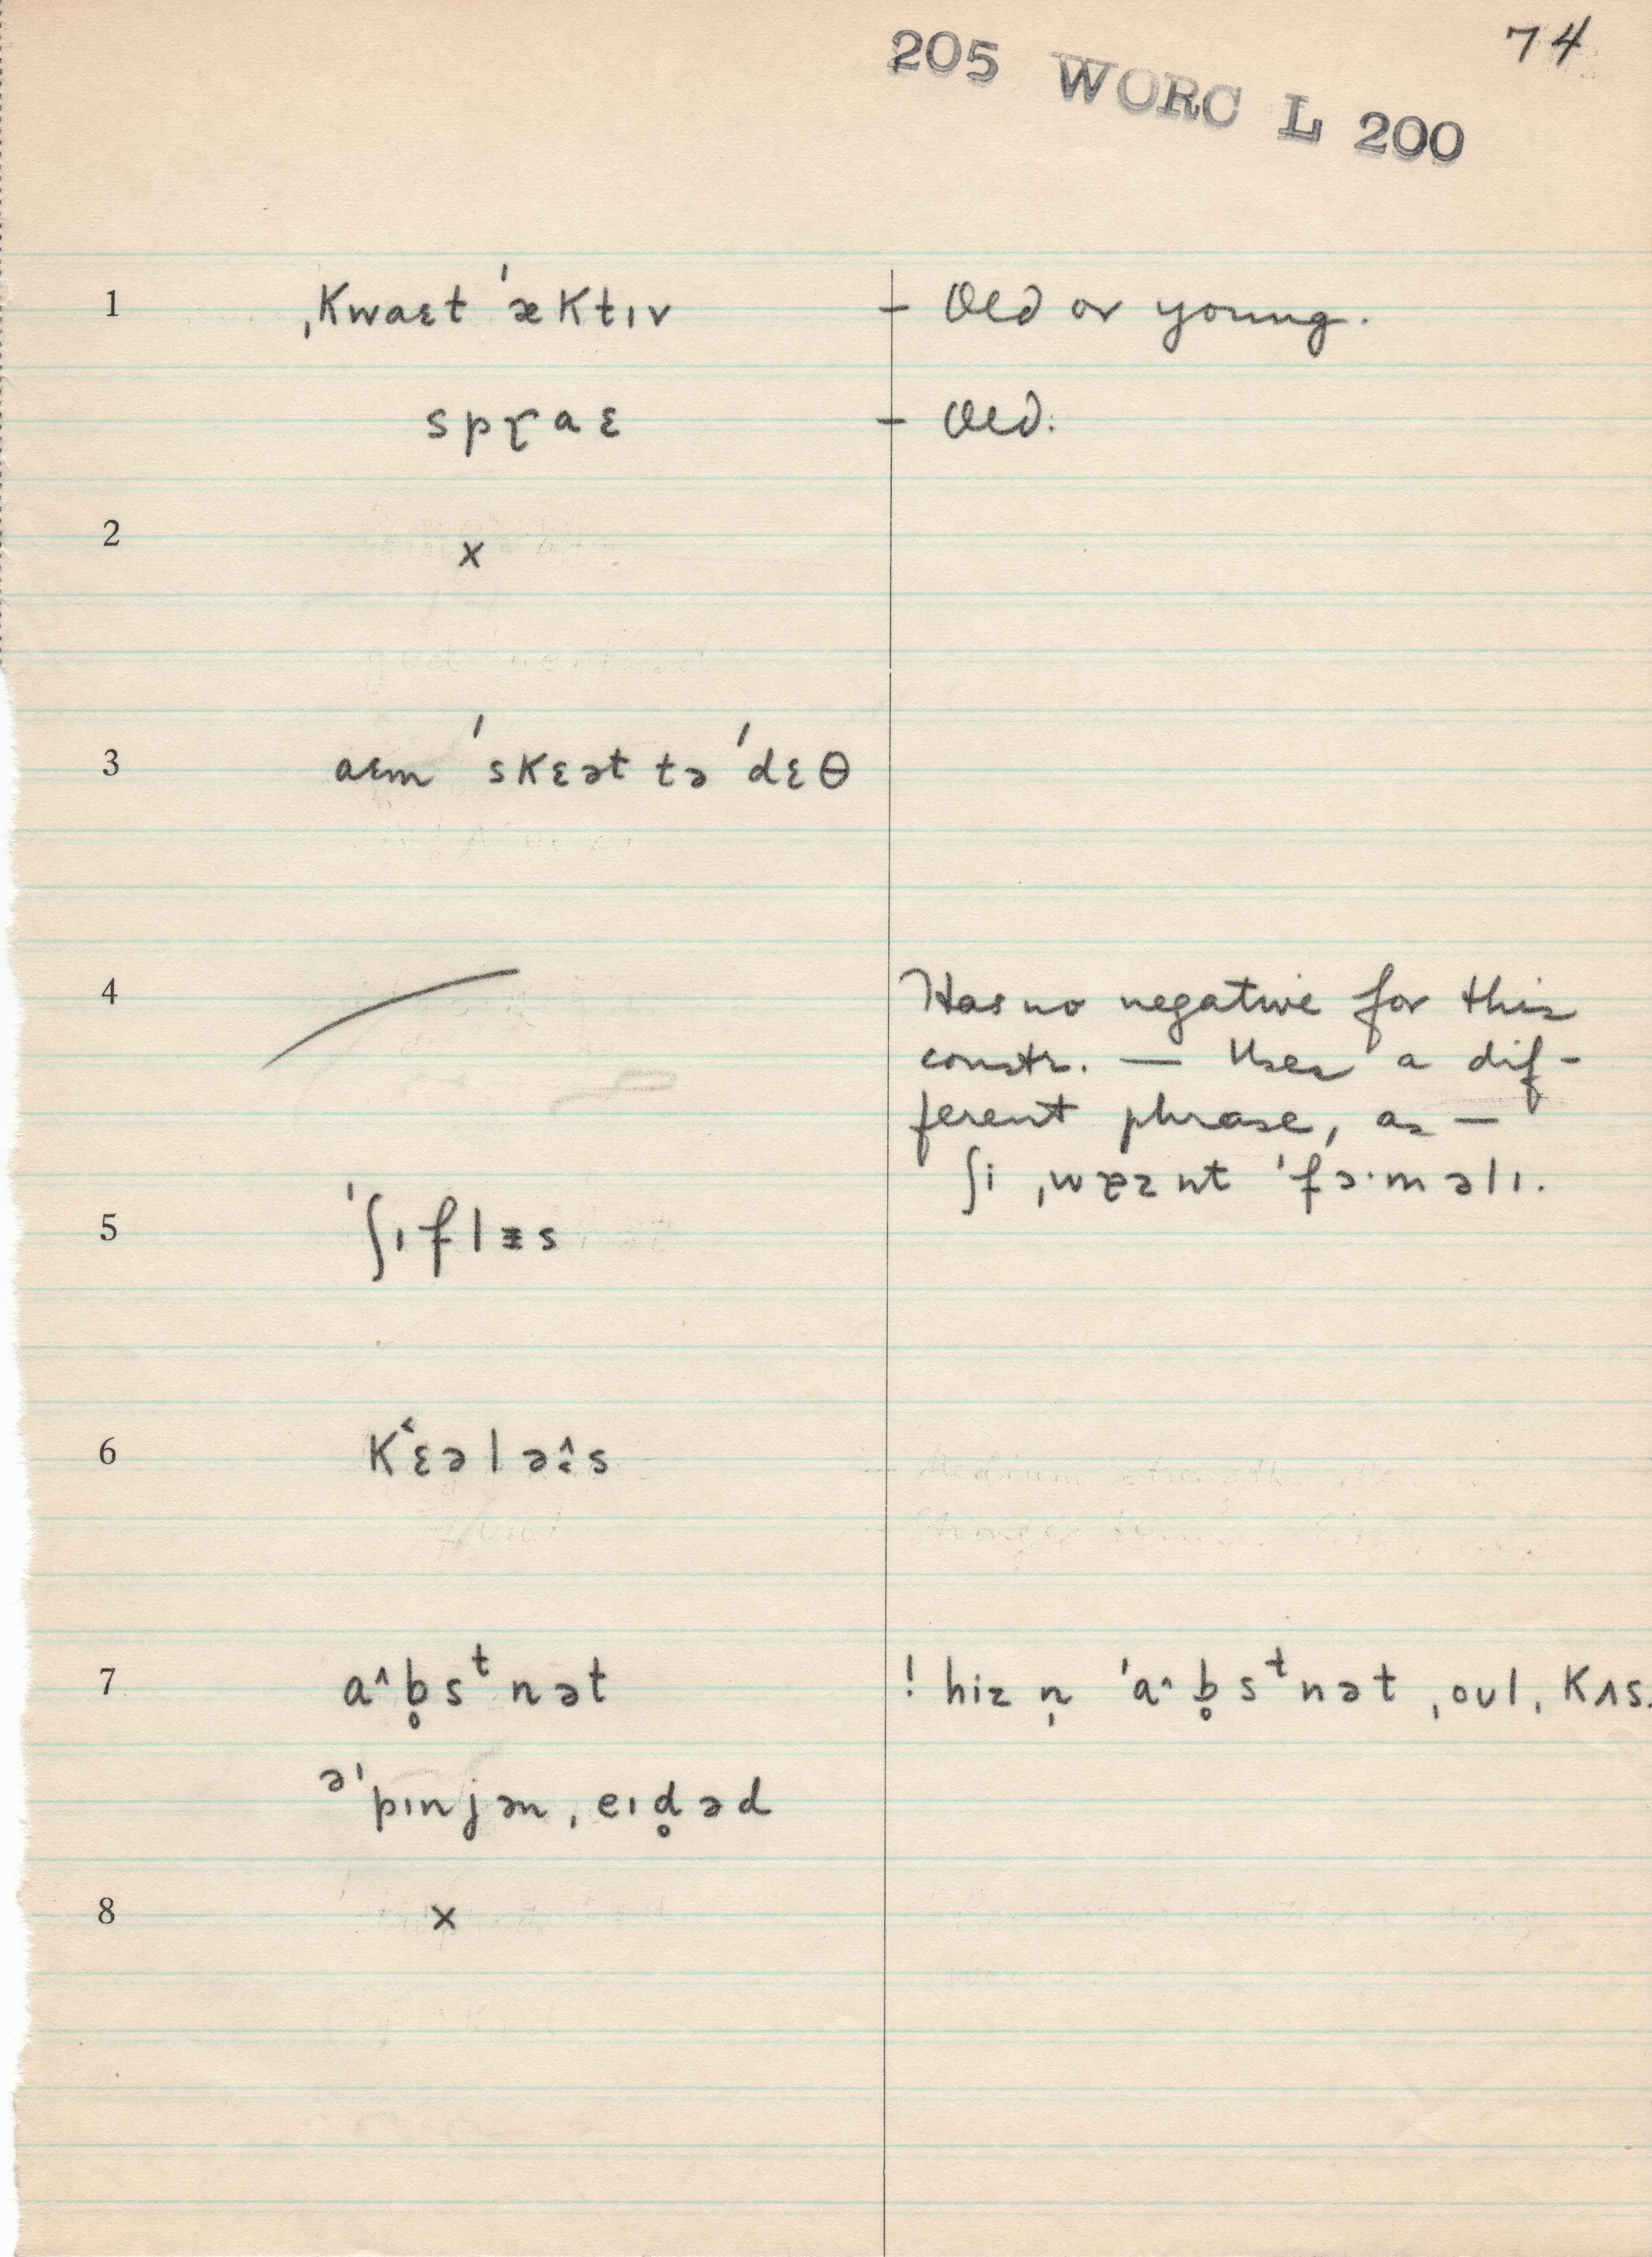 74
205 WORC L 200
1 ˌkwaɛt ˈæktɪv – Old or young.
sprae – Old.
2 x
3 aɛm ˈskɛət tə ˈdɛθ
4 Has no negative for this
constr. — Uses a dif-
ferent phrase, as —
ʃi ˌwɐznt ˈfɜ·məlɪ.
5 ˈʃɪflɪs
6 kɛələs
7 a^b̥sᵗnət ! hiz n̩ ˈa^b̥sᵗnət ˌoʊl ˌkʌs.
əˈpɪnjən ˌeɪd̥əd
8 x